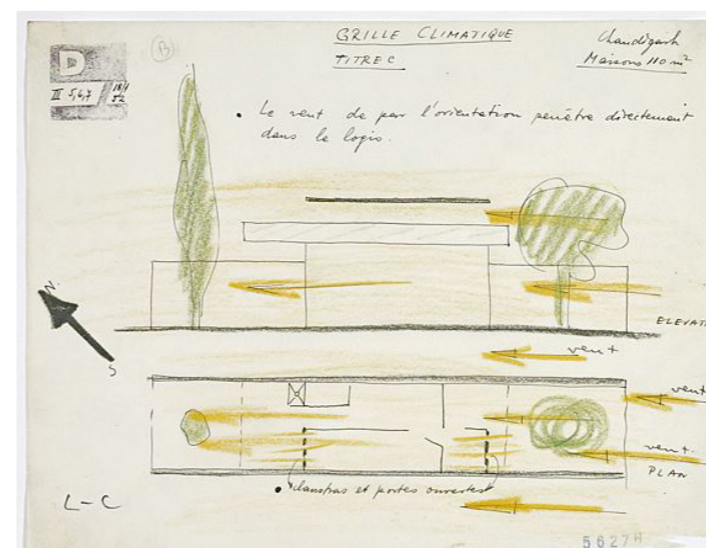 D
III 5,6,7
B
GRILLE CLIMATIQUE
TITRE C
Chandigarh
Maisons 110 m²
• Le vent de par l'orientation penètre directement
dans le logis.
N.
S
ELEVATI
vent
vent
vent.
PLAN
• claustras et portes ouvertes
L-C
5627H